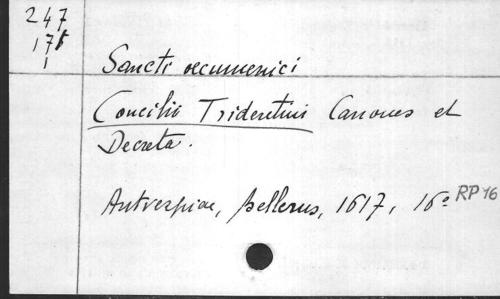 247
175
1
Sancti oecumenici
Concilii Tridentini Canones et
Decreta.
Antverpiae, Bellerus, 1617, 16º RP 16